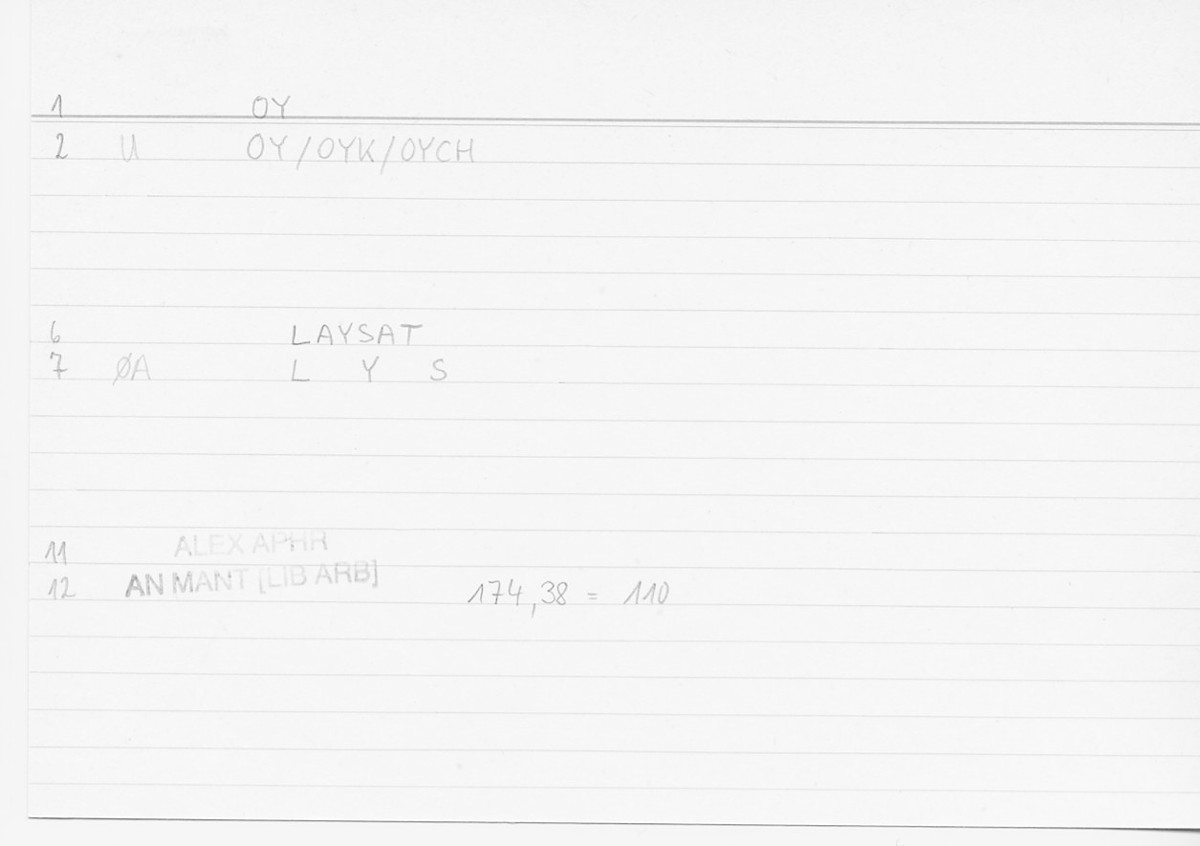 1 OY
2 U OY/OYK/OYCH
6 LAYSAT
7 ØA L Y S
11 ALEX APHR
12 AN MANT [LIB ARB] 174,38 = 110